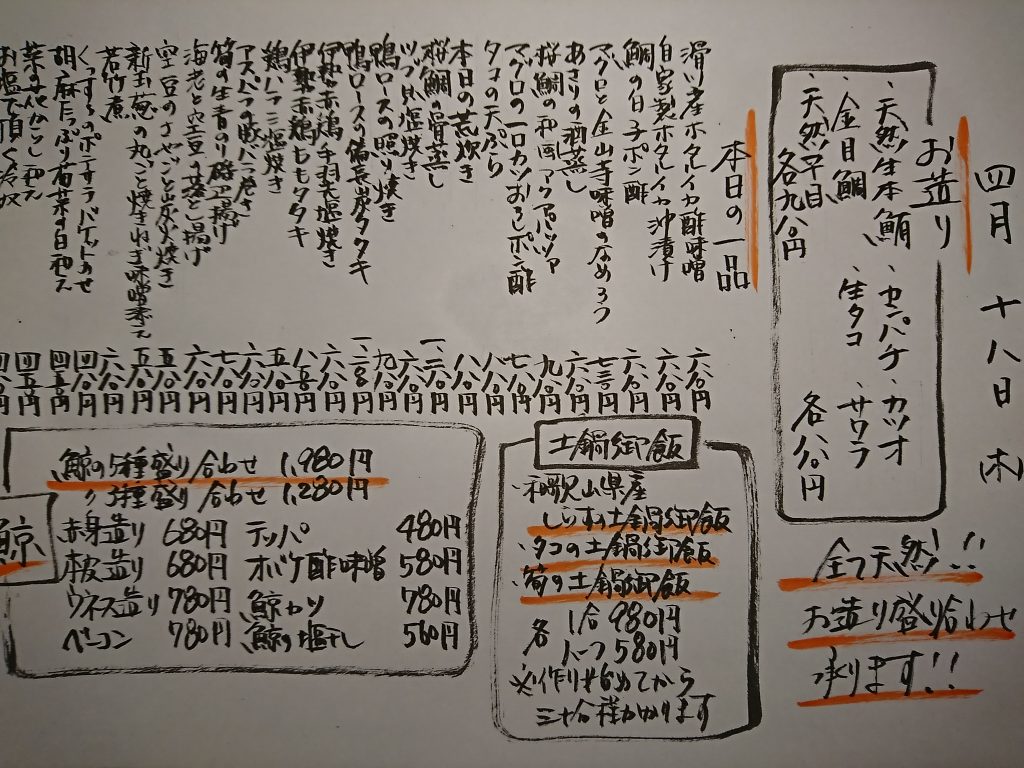 四月十八日(木)
お造り
、天然生本鮪 、カンパチ 、カツオ
、金目鯛 、生タコ 、サワラ
、天然平目
各九八〇円 各八八〇円
全て天然!!
お造り盛り合わせ
承ります!!
本日の一品
滑川産ホタルイカ酢味噌 六八〇円
自家製ホタルイカ沖漬け 六八〇円
鯛の白子ポン酢 六八〇円
マグロと金山寺味噌のなめろう 七三〇円
あさりの酒蒸し 六八〇円
桜鯛の和風アクアパッツァ 九八〇円
マグロの一口カツおろしポン酢 七八〇円
タコの天ぷら 六八〇円
本日の荒炊き 八八〇円
桜鯛の骨蒸し
ツブ貝塩焼き 六八〇円
鴨ロースの照り焼き 九八〇円
鴨ロースの備長炭タタキ
伊勢赤鶏手羽塩焼き
伊勢赤鶏ももタタキ 八八〇円
鶏ハラミ塩焼き 五八〇円
アスパラの豚バラ巻き 六八〇円
筍の生青のり磯辺揚げ 七八〇円
海老と空豆の落とし揚げ 六八〇円
空豆のさやごと炭火焼き 五八〇円
新玉葱の丸ごと焼きねぎ味噌添え 五八〇円
若竹煮 六八〇円
くんすもののポテサラバゲットのせ 四八〇円
胡麻たっぷり有菜の白和え 四五〇円
菜の花からし和え 四五〇円
お塩で頂く冷奴 四八〇円
土鍋御飯
・和歌山県産
しらすの土鍋御飯
・タコの土鍋御飯
・筍の土鍋御飯
各 1合 980円
ハーフ 580円
※作り始めてから
三十分程かかります
鯨
鯨の5種盛り合わせ 1,980円
〃 3種盛り合わせ 1,280円
赤身造り 680円 テッパ 480円
本皮造り 680円 オバケ酢味噌 580円
ウネス造り 780円 鯨カツ 780円
ベーコン 780円 鯨の塩干し 560円